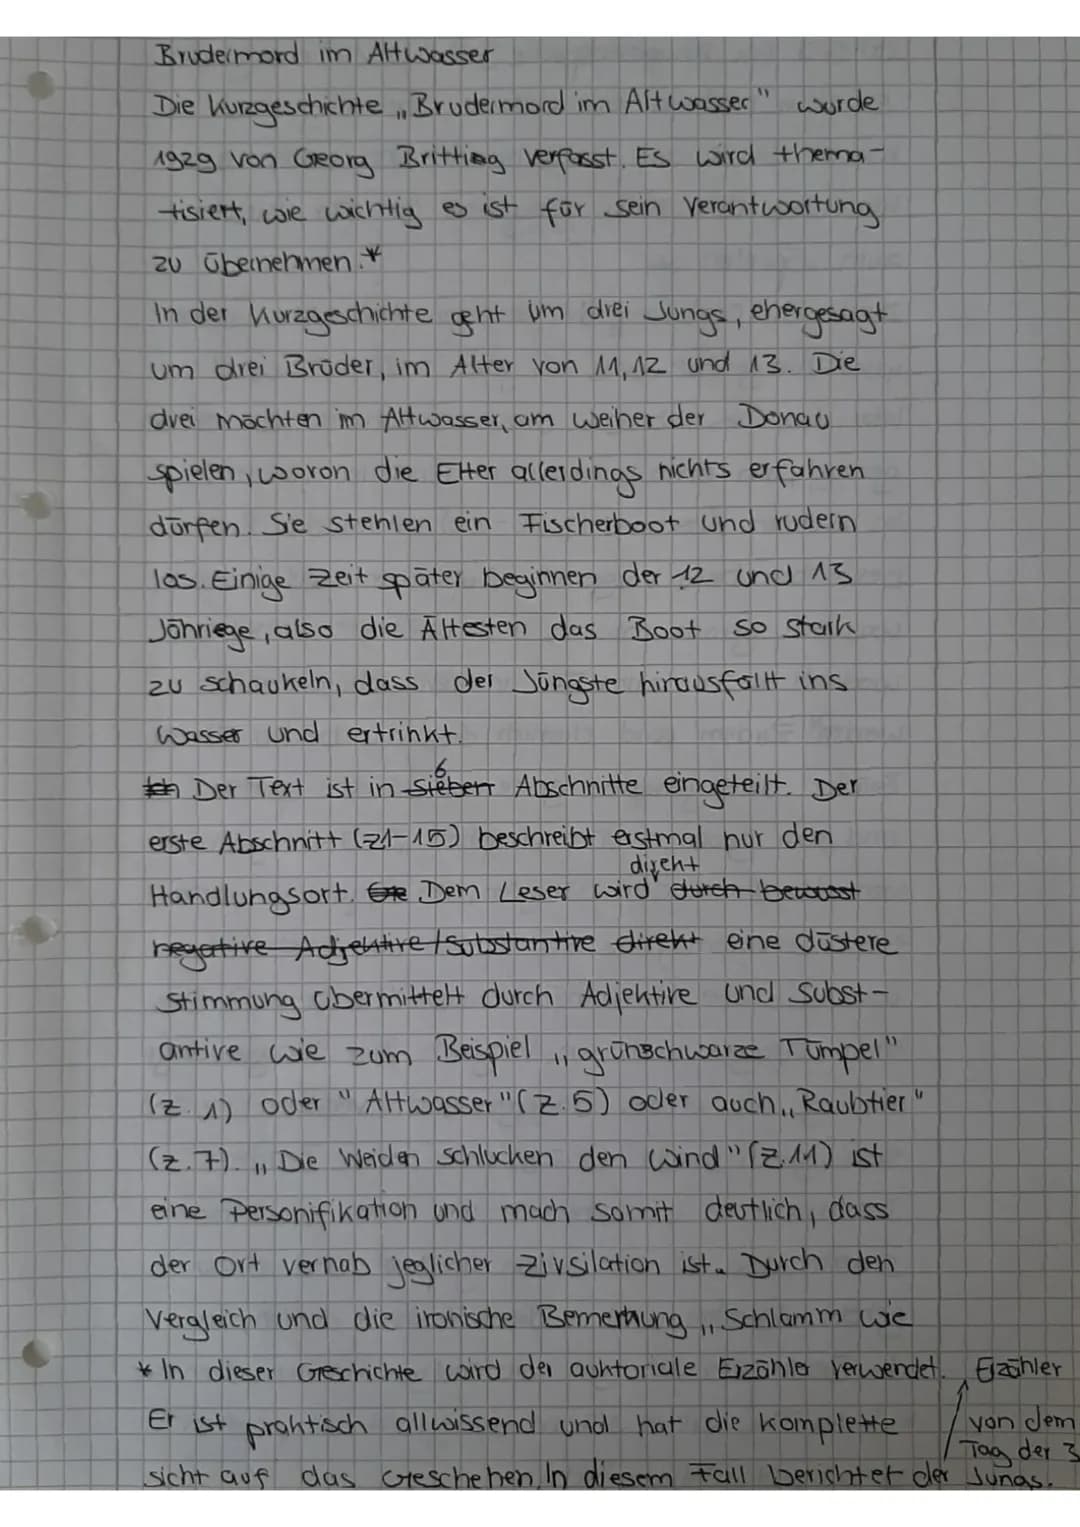 Brudermord im Altwasser
Die Kurzgeschichte „Brudermord im Altwasser" wurde
1929 von Georg Britting verfasst. Es wird thema-
tisiert, wie wichtig es ist für sein Verantwortung
zu übernehmen.*
In der Kurzgeschichte geht um drei Jungs, ehergesagt
um drei Brüder, im Alter von 11, 12 und 13. Die
drei möchten im Altwasser, am Weiher der Donau
spielen, wovon die Elter allerdings nichts erfahren
dürfen. Sie stehlen ein Fischerboot und rudern
los. Einige Zeit später beginnen der 12 und 13
Jähriege, also die Ältesten das Boot so stark
zu schaukeln, dass der Jüngste hirausfällt ins
Wasser und ertrinkt.
Der Text ist in sieben 6 Abschnitte eingeteilt. Der
erste Abschnitt (z1-15) beschreibt erstmal nur den
Handlungsort. Dem Leser wird direkt durch bewusst
negative Adjektive/Substantive direkt eine düstere
Stimmung übermittelt durch Adjektive und Subst-
antive wie zum Beispiel „grünschwarze Tümpel"
(z. 1) oder "Altwasser" (z. 5) oder auch „Raubtier"
(z. 7). „Die Weiden schlucken den Wind" (z. 11) ist
eine Personifikation und mach somit deutlich, dass
der Ort vernab jeglicher Zivsilation ist. Durch den
Vergleich und die ironische Bemerkung „Schlamm wie
* In dieser Geschichte wird der auktoriale Erzähler verwendet.
Er ist praktisch allwissend und hat die komplette
sicht auf das Geschehen. In diesem Fall berichtet der
Erzähler
von dem
Tag der 3
Jungs.